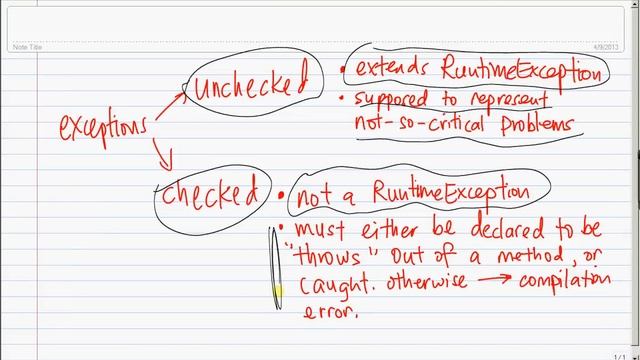 Note Title
4/9/2013
unchecked
• extends RuntimeException
• supposed to represent
not-so-critical problems
exceptions
checked
• not a RuntimeException
• must either be declared to be
"throws" out of a method, or
caught. otherwise → compilation
error.
1/1